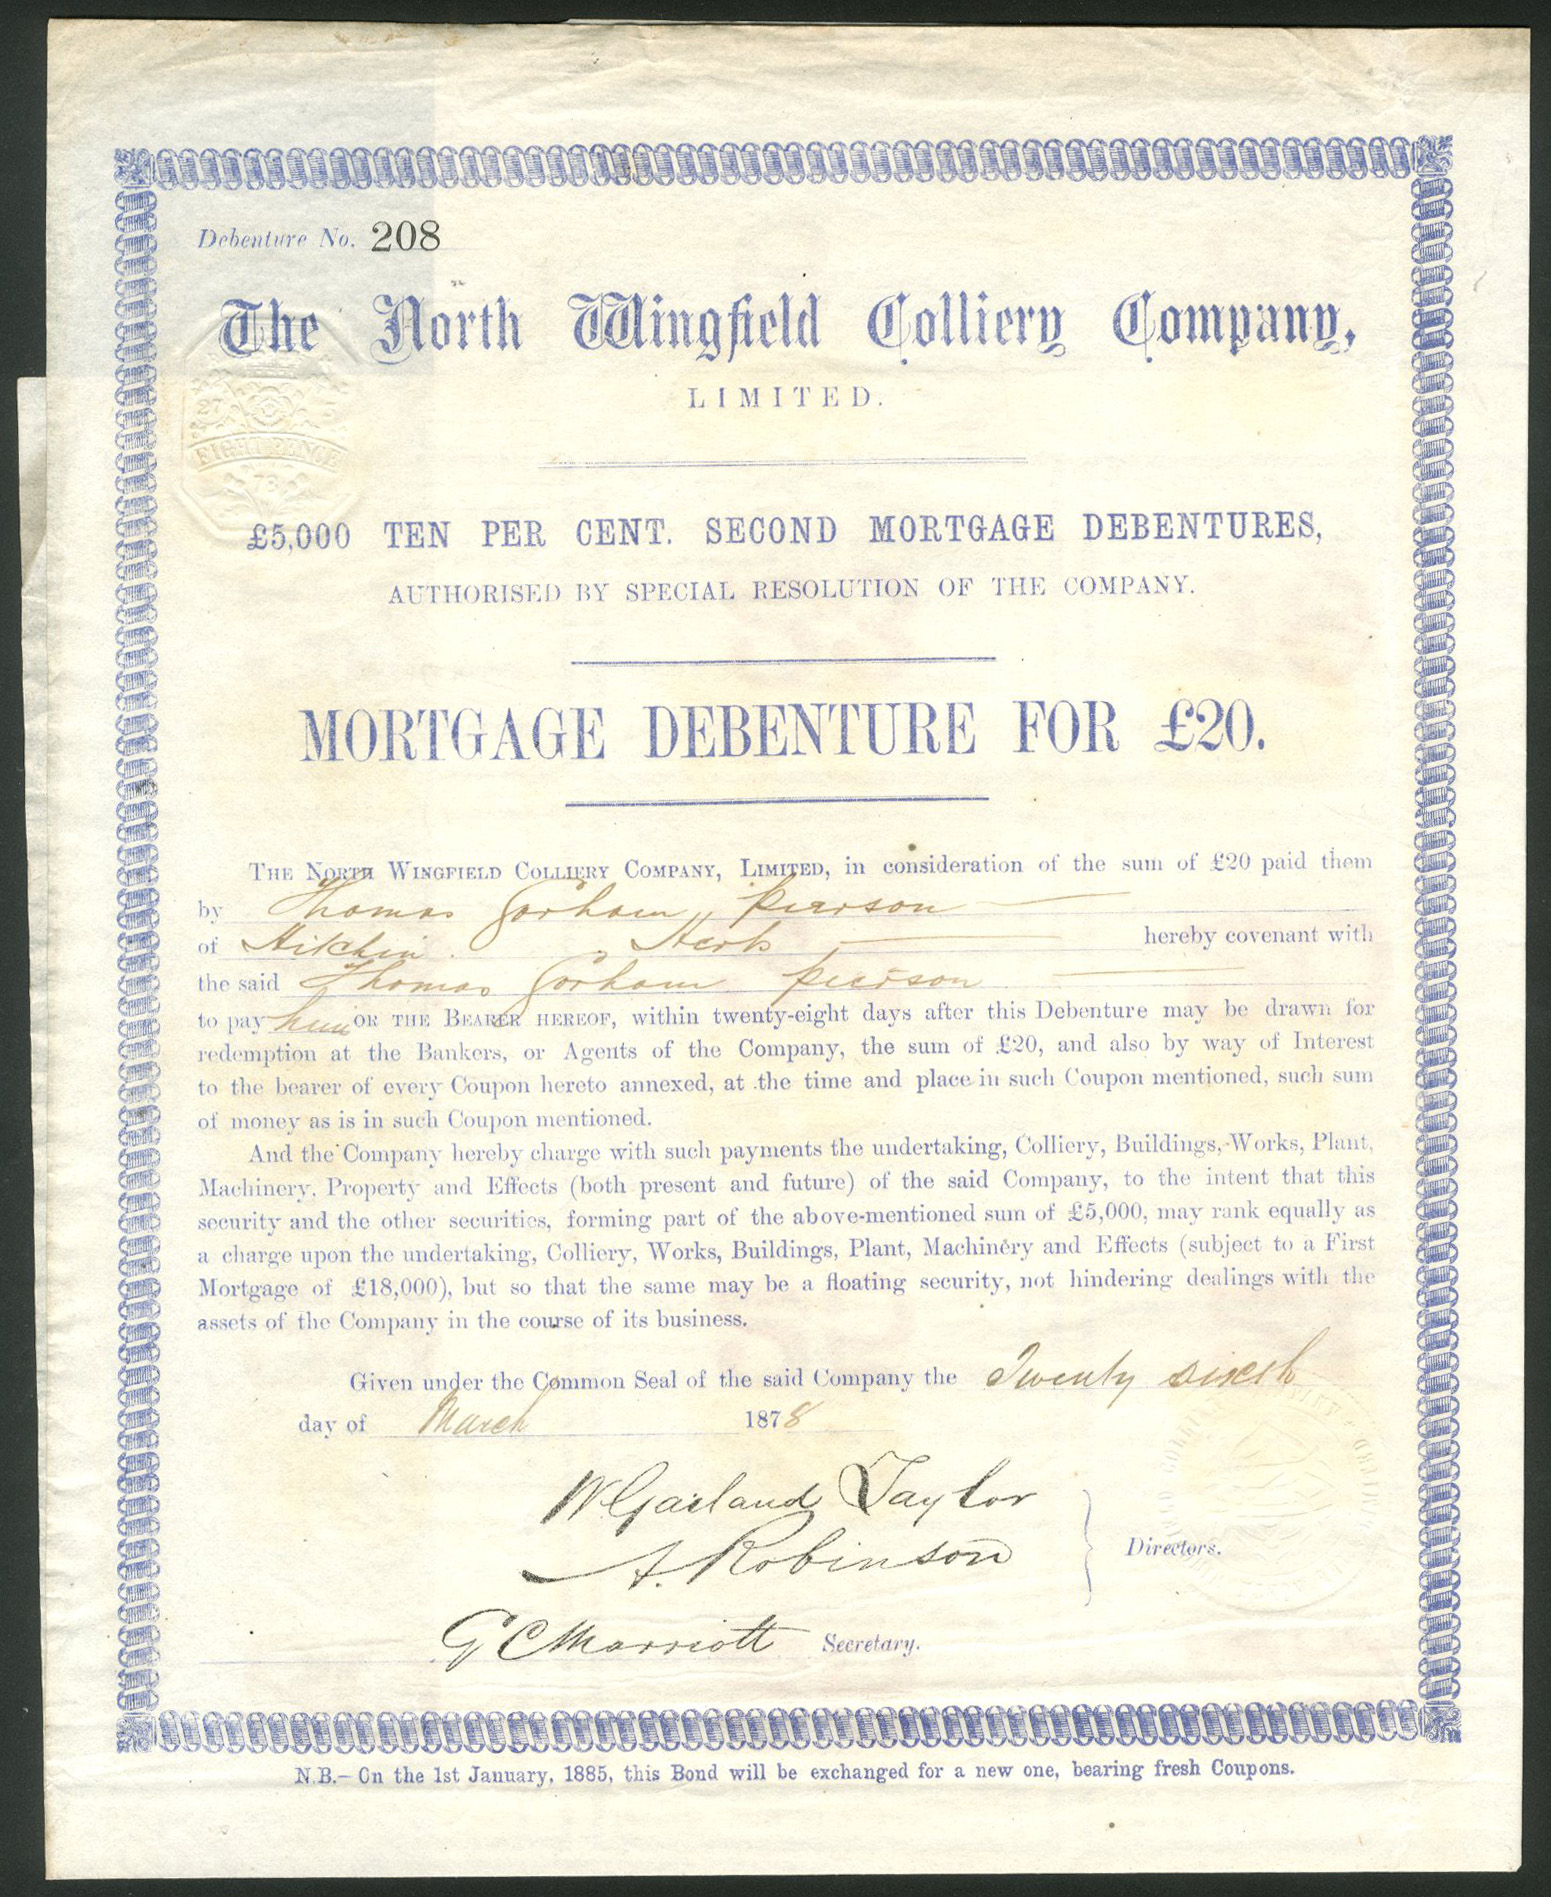 Debenture No. 208
The North Wingfield Colliery Company,
LIMITED.
27
EIGHT PENCE
£5,000 TEN PER CENT. SECOND MORTGAGE DEBENTURES,
AUTHORISED BY SPECIAL RESOLUTION OF THE COMPANY.
MORTGAGE DEBENTURE FOR £20.
THE NORTH WINGFIELD COLLIERY COMPANY, LIMITED, in consideration of the sum of £20 paid them
by Thomas Gorham Pierson
of Hitchin, Herts hereby covenant with
the said Thomas Gorham Pierson
to pay him OR THE BEARER HEREOF, within twenty-eight days after this Debenture may be drawn for
redemption at the Bankers, or Agents of the Company, the sum of £20, and also by way of Interest
to the bearer of every Coupon hereto annexed, at the time and place in such Coupon mentioned, such sum
of money as is in such Coupon mentioned.
And the Company hereby charge with such payments the undertaking, Colliery, Buildings, Works, Plant,
Machinery, Property and Effects (both present and future) of the said Company, to the intent that this
security and the other securities, forming part of the above-mentioned sum of £5,000, may rank equally as
a charge upon the undertaking, Colliery, Works, Buildings, Plant, Machinery and Effects (subject to a First
Mortgage of £18,000), but so that the same may be a floating security, not hindering dealings with the
assets of the Company in the course of its business.
Given under the Common Seal of the said Company the Twenty sixth
day of March 1878
W Garland Taylor
A. Robinson
Directors.
G C Marriott Secretary.
N.B.— On the 1st January, 1885, this Bond will be exchanged for a new one, bearing fresh Coupons.